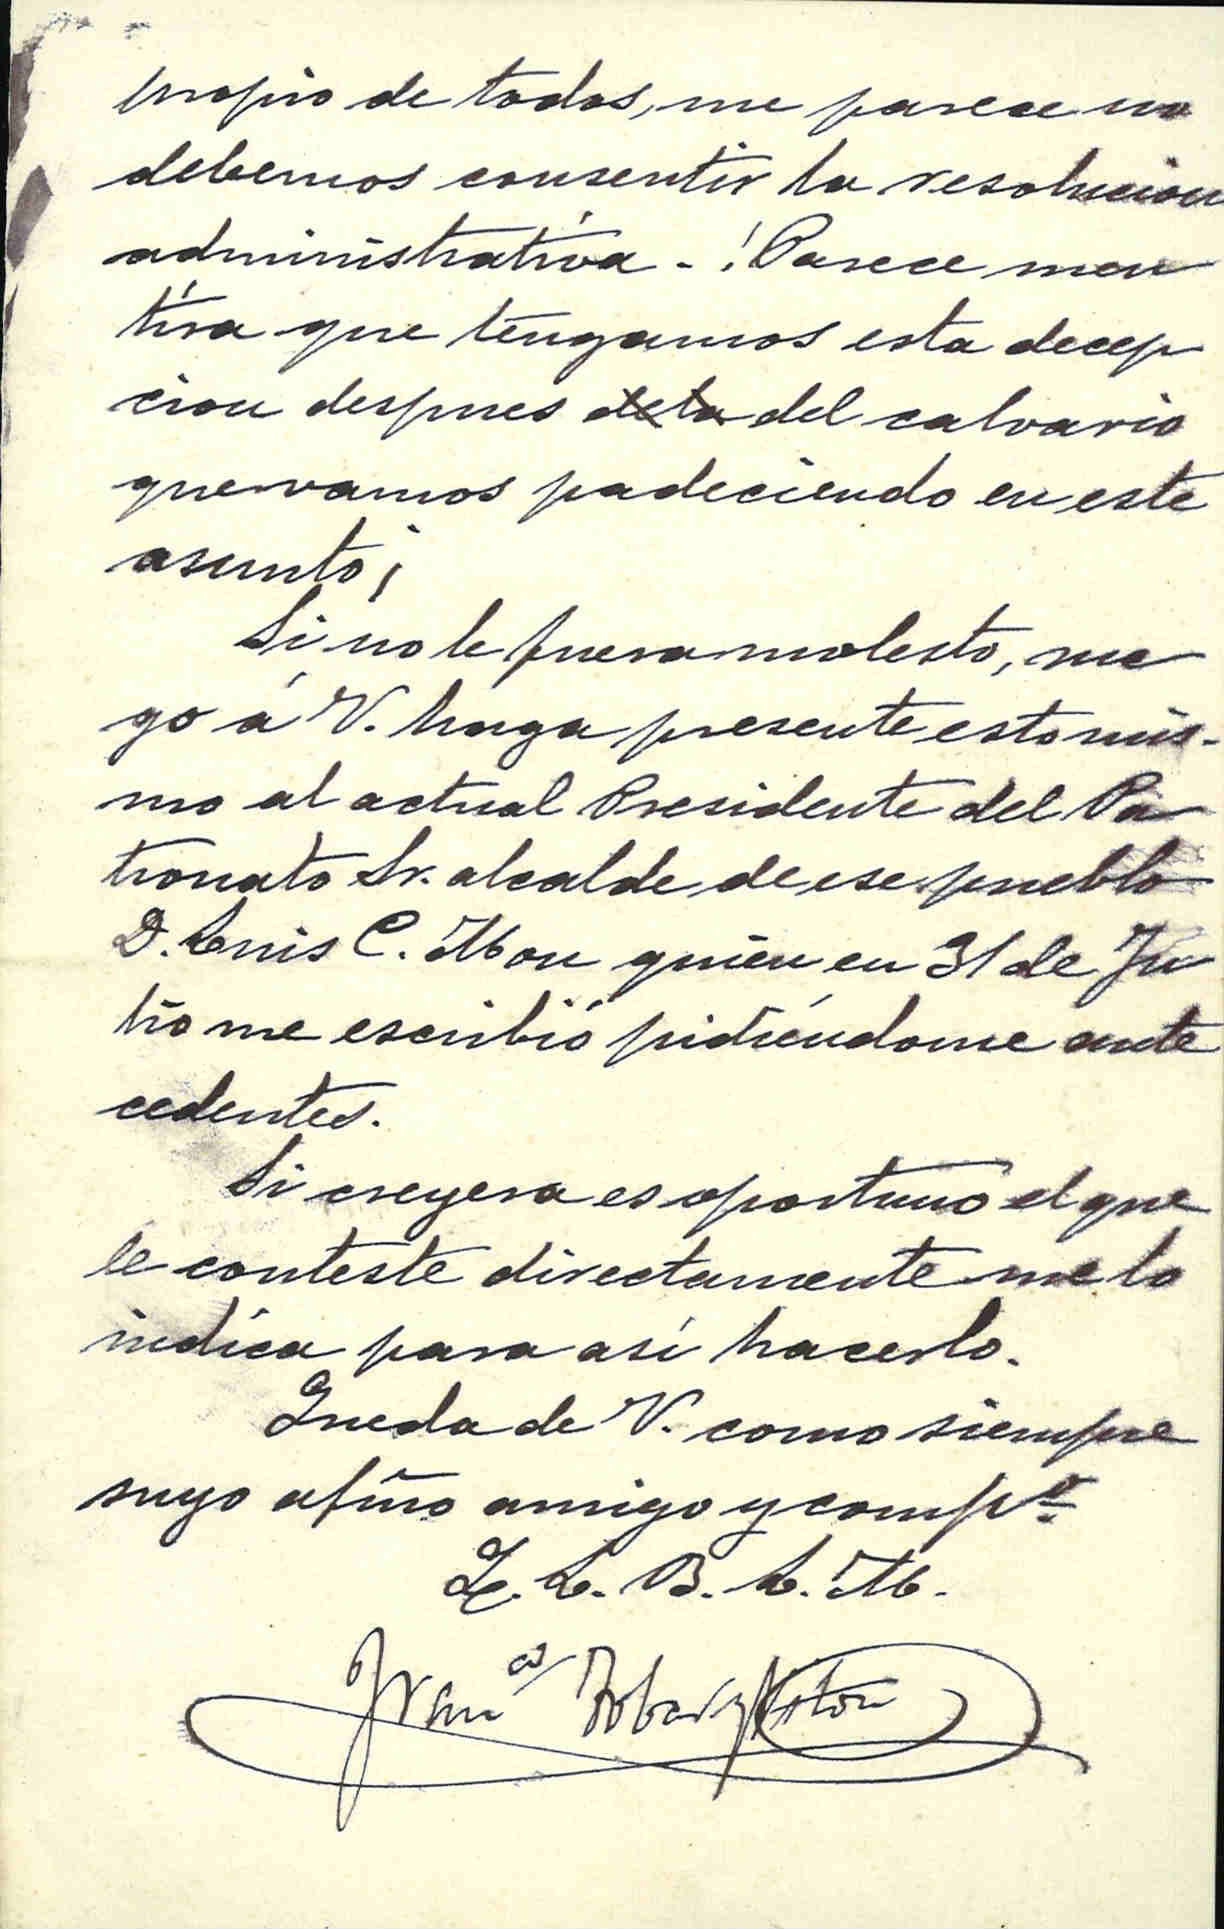 propio de todos, me parece no
debemos consentir la resolucion
administrativa - ¡Parece men
tira que tengamos esta decep
cion despues de la del calvario
que vamos padeciendo en este
asunto¡
Si no le fuera molesto, rue
go á V. haga presente esto mis-
mo al actual Presidente del Pa
tronato Sr. alcalde de ese pueblo
D. Luis C. Mon quien en 31 de Ju
lio me escribió pidiéndome ante
cedentes.
Si creyera es oportuno el que
le conteste directamente me lo
indica para así hacerlo.
Queda de V. como siempre
suyo afmo amigo y compº.
Q. L. B. L. M.
Franco Tobar y